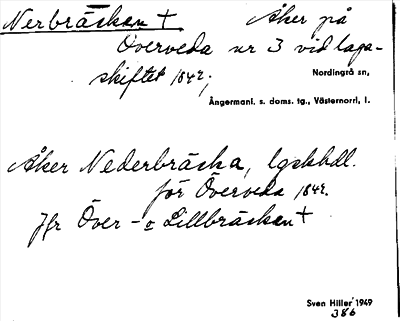 Nerbräckan † Åker på
Överveda nr 3 vid laga-
skiftet 1842;
Nordingrå sn,
Ångermanl. s. doms. tg., Västernorrl. l.
Åker Nederbräcka, lgskhdl.
för Överveda 1842.
Jfr Över- o Lillbräckan †
Sven Hiller 1949
386